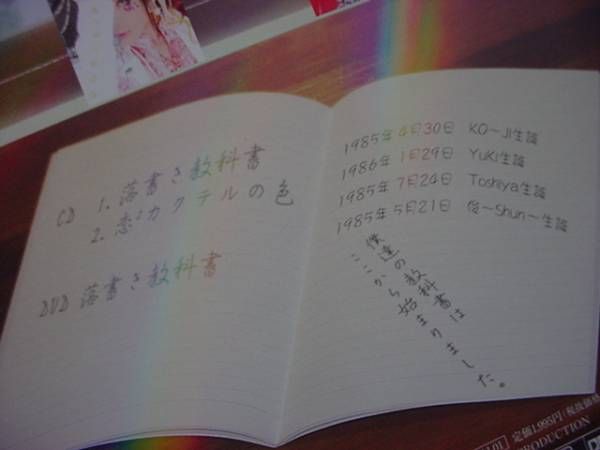 CD 1. 落書き教科書
2. 恋カクテルの色
DVD 落書き教科書
1985年4月30日 KO〜JI生誕
1986年1月29日 YuKi生誕
1985年7月24日 Toshiya生誕
1985年5月21日 俊〜Shun〜生誕
僕達の教科書は
ここから始まりました。
定価1,995円/税抜価格
PRODUCTION